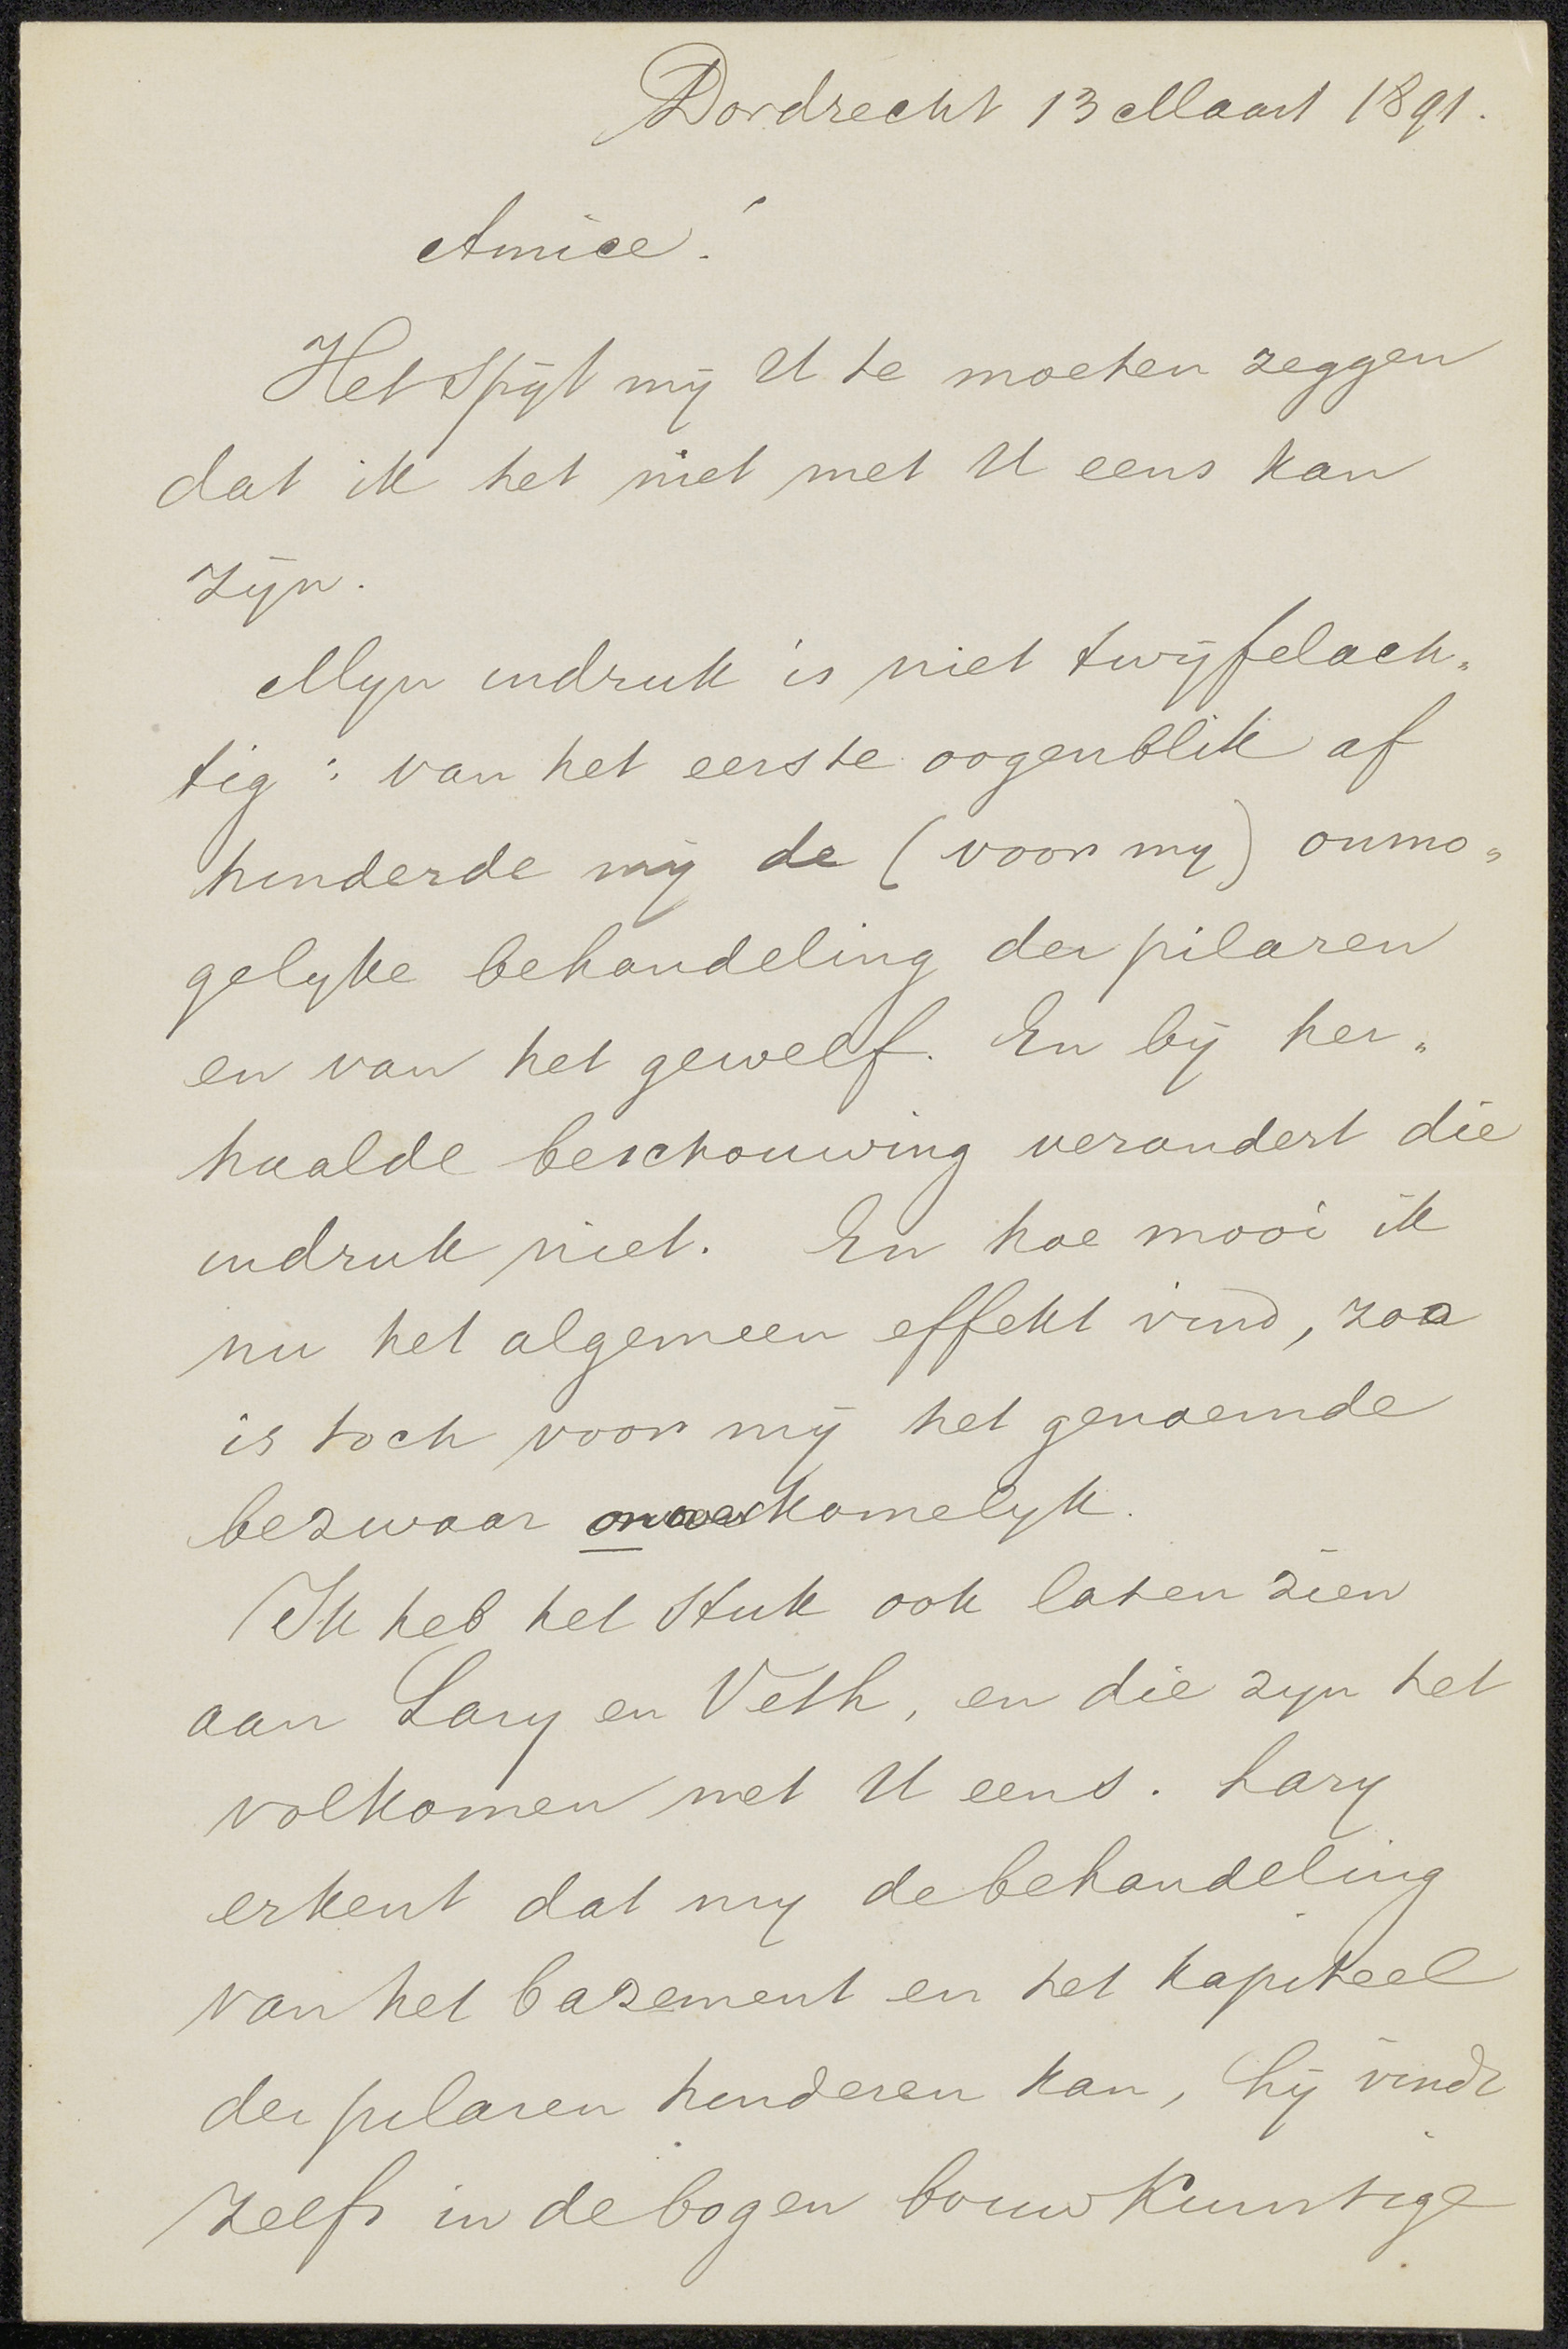 Dordrecht 13 Maart 1891.
Amice!
Het spijt mij U te moeten zeggen
dat ik het niet met U eens kan
zijn.
Mijn indruk is niet twijfelach„
tig: van het eerste oogenblik af
hinderde mij de (voor mij) onmo„
gelijke behandeling der pilaren
en van het gewelf. En bij her„
haalde beschouwing verandert die
indruk niet. En hoe mooi ik
nu het algemeen effekt vind, zoo
is toch voor mij het genoemde
bezwaar onoverkomelijk.
Ik heb het stuk ook laten zien
aan Lary en Veth, en die zijn het
volkomen met U eens. Lary
erkent dat mij de behandeling
van het bazement en het kapiteel
der pilaren hinderen kan, hij vindt
zelfs in de bogen bouwkunstige